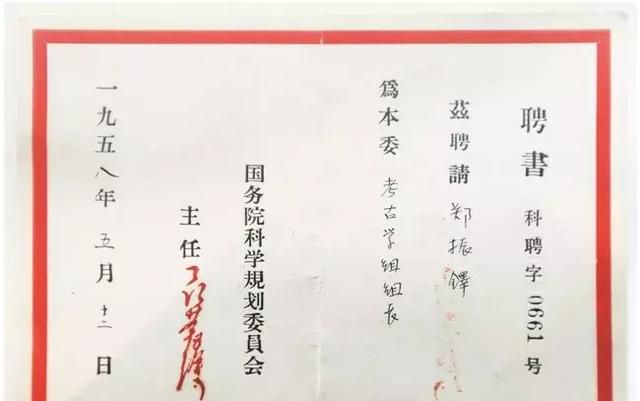 聘書 科聘字0661号
茲聘請郑振鐸
爲本委考古学组组长
国务院科学规划委員会
主任
一九五八年五月十二日